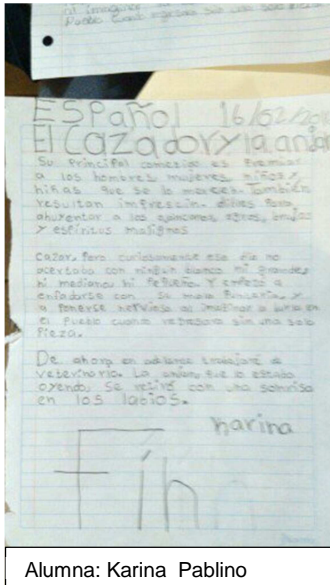 al imaginar
Pueblo Cuando regresara sin una sola
ESPañol 16/02/201
El Cazador y la anjan
Su Principal cometido es Premiar
a los hombres mujeres niños y
niñas que se lo merecen. También
resultan imprescin- dibles Para
ahuyentar a los ojancanos ogros, brujas
y espiritus malignos
cazar, Pero curiosamente ese día no
acertaba con ningún blanco ni grandes
ni mediano, ni Pequeño. Y empezó a
enfadarse con su mala Puntería, y
a Ponerse nervioso al imaginar la burla en
el Pueblo cuando regresara sin una sola
Pieza.
De ahora en adelante trabajaré de
veterinario. La anjan, que lo estaba
oyendo, se retiró con una sonrisa
en los labios.
Karina
Fin
Alumna: Karina Pablino